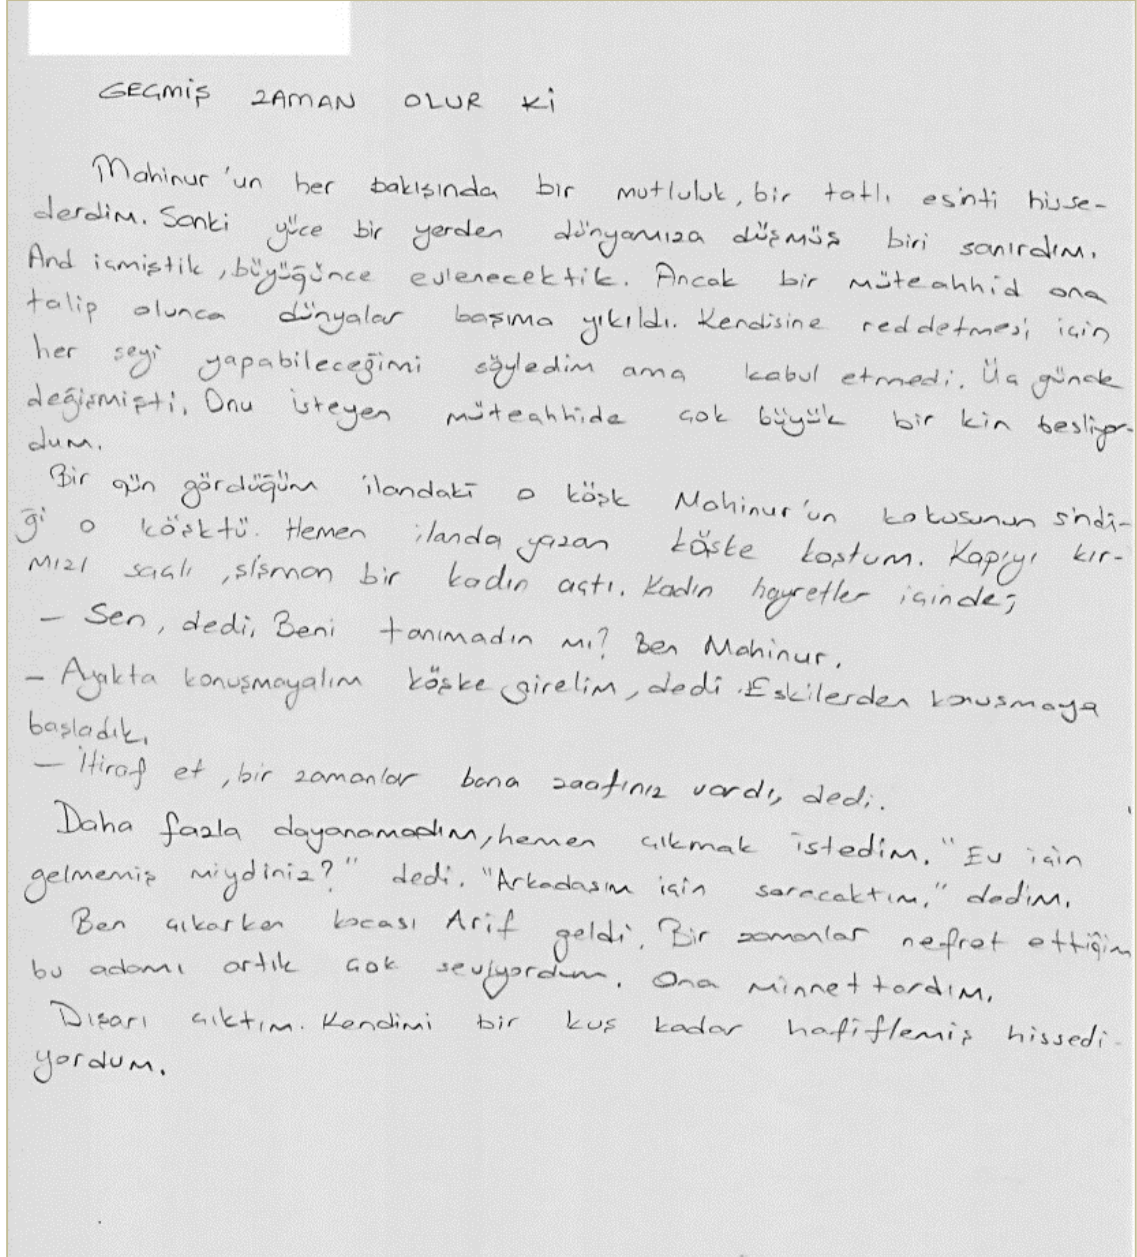 GEÇMİŞ ZAMAN OLUR Kİ
Mahinur'un her bakışında bir mutluluk, bir tatlı esinti hisse-
derdim. Sanki yüce bir yerden dünyamıza düşmüş biri sanırdım.
And içmiştik, büyüğünce evlenecektik. Ancak bir müteahhid ona
talip olunca dünyalar başıma yıkıldı. Kendisine reddetmesi için
her şeyi yapabileceğimi söyledim ama kabul etmedi. Üç günde
değişmişti. Onu isteyen müteahhide çok büyük bir kin besliyor-
dum.
Bir gün gördüğüm ilandaki o köşk Mahinur'un kokusunun sindi-
ği o köşktü. Hemen ilanda yazan köşke koştum. Kapıyı kır-
mızı saçlı, şişman bir kadın açtı. Kadın hayretler içinde;
- Sen, dedi, Beni tanımadın mı? Ben Mahinur.
- Ayakta konuşmayalım köşke girelim, dedi. Eskilerden konuşmaya
başladık.
- İtiraf et, bir zamanlar bana zaafınız vardı, dedi.
Daha fazla dayanamadım, hemen çıkmak istedim. "Ev için
gelmemiş miydiniz?" dedi. "Arkadaşım için soracaktım." dedim.
Ben çıkarken kocası Arif geldi. Bir zamanlar nefret ettiğim
bu adamı artık çok seviyordum. Ona minnettardım.
Dışarı çıktım. Kendimi bir kuş kadar hafiflemiş hissedi-
yordum.